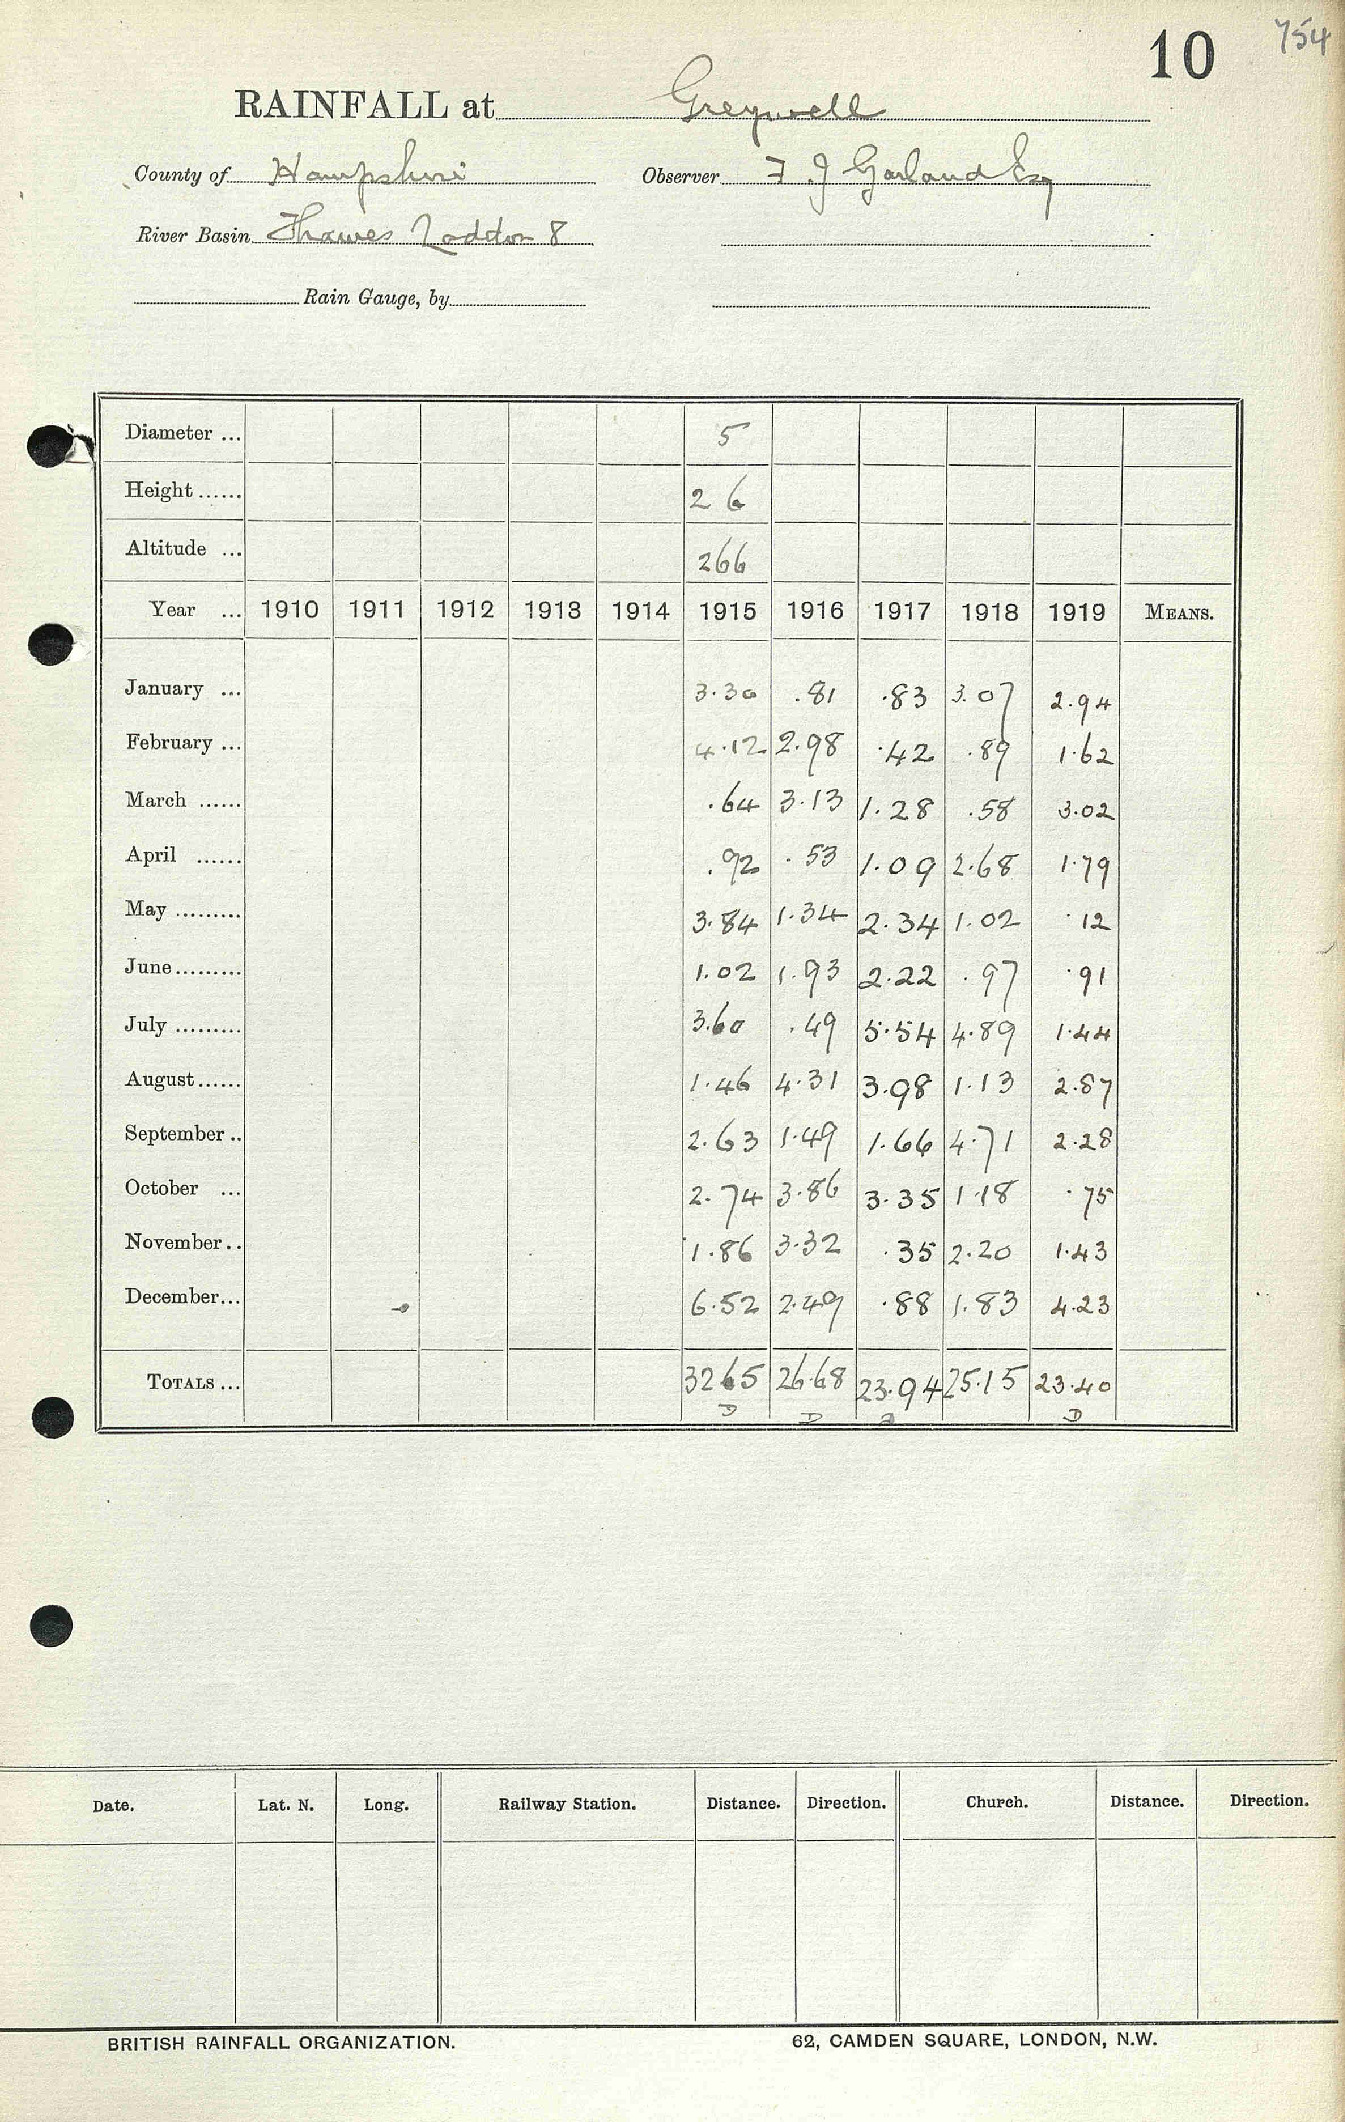 10 754
RAINFALL at Greywell
County of Hampshire Observer F J Garland Esq
River Basin Thames Loddon 8
Rain Gauge, by
Diameter ... 5
Height ...... 2 6
Altitude ... 266
Year ... 1910 1911 1912 1913 1914 1915 1916 1917 1918 1919 MEANS.
January ... 3.30 .81 .83 3.07 2.94
February ... 4.12 2.98 .42 .89 1.62
March ...... .64 3.13 1.28 .58 3.02
April ...... .92 .53 1.09 2.68 1.79
May ......... 3.84 1.34 2.34 1.02 .12
June ......... 1.02 1.93 2.22 .97 .91
July ......... 3.60 .49 5.54 4.89 1.44
August ...... 1.46 4.31 3.98 1.13 2.87
September .. 2.63 1.49 1.66 4.71 2.28
October ... 2.74 3.86 3.35 1.18 .75
November .. 1.86 3.32 .35 2.20 1.43
December ... 6.52 2.49 .88 1.83 4.23
TOTALS ... 32.65 26.68 23.94 25.15 23.40
D D D D
Date. Lat. N. Long. Railway Station. Distance. Direction. Church. Distance. Direction.
BRITISH RAINFALL ORGANIZATION. 62, CAMDEN SQUARE, LONDON, N.W.